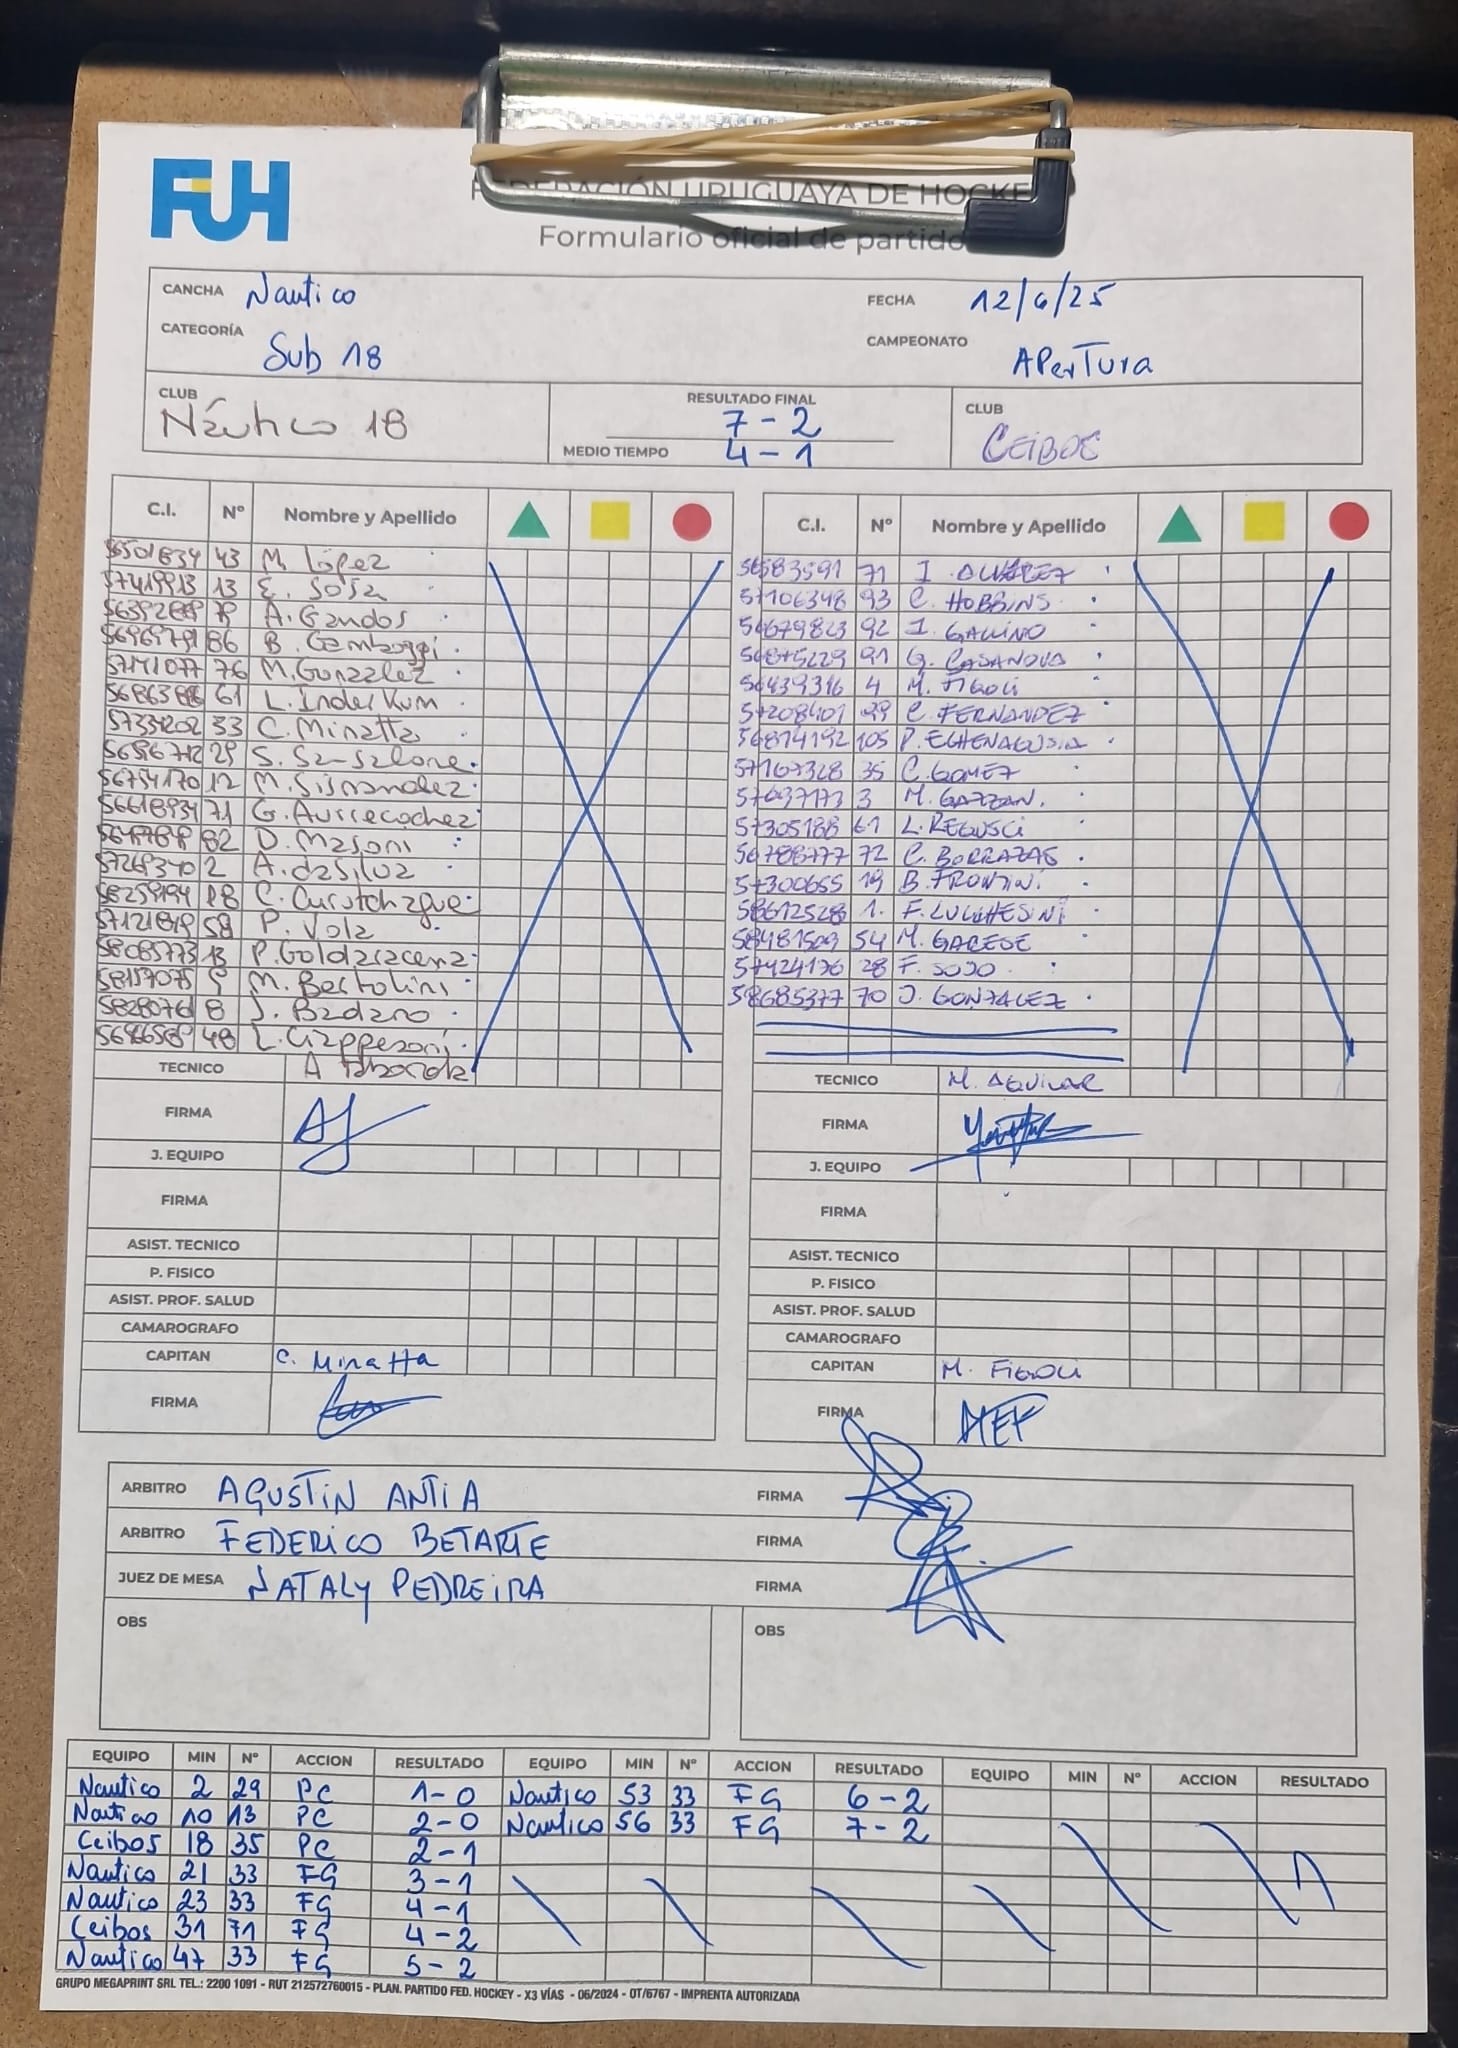 FUH
FEDERACIÓN URUGUAYA DE HOCKE
Formulario oficial de partido
CANCHA Nautico FECHA 12/6/25
CATEGORÍA Sub 18 CAMPEONATO APerTura
CLUB Náutico 18 RESULTADO FINAL 7-2 CLUB CEIBOS
MEDIO TIEMPO 4-1
C.I. Nº Nombre y Apellido C.I. Nº Nombre y Apellido
56501834 43 M. López 56583591 71 I.
57419913 13 E. Sosa 57106348 93 C. HOBBINS
A. Gandos 56679823 92 I. GALLINO
86 B. Gamboggi 56875229 91 G. CASANOVA
57141077 76 M. Gonzalez 56439316 4 M. FIGOLI
61 L. Inderkum 57208401 C. FERNANDEZ
33 C. Minatta 56814192 105 P.
29 S. 57167328 35 C. GOMEZ
56754170 12 M. Sisnandez 57637173 3 M. GAZZAN.
56618934 71 G. Aurrecochez 57305188 61 L. REGUSCI
82 D. Masoni 56786777 72 C. BORRAZAS
2 A. dasilva 57300655 19 B. FRONTINI
58259194 18 C. 58612528 1. F. LUCHESINI
58 P. Vola 58481509 54 M. GARESE
58085773 13 P. Goldaracena 57424176 28 F. SOJO
58157075 5 M. Bertolini 58685377 70 J. GONZALEZ
58280761 8 J. Badano
48 L.
TECNICO A TECNICO M. AGUILAR
FIRMA FIRMA
J. EQUIPO J. EQUIPO
FIRMA FIRMA
ASIST. TECNICO ASIST. TECNICO
P. FISICO P. FISICO
ASIST. PROF. SALUD ASIST. PROF. SALUD
CAMAROGRAFO CAMAROGRAFO
CAPITAN C. Minatta CAPITAN M. FIGOLI
FIRMA FIRMA
ARBITRO AGUSTIN ANTIA FIRMA
ARBITRO FEDERICO BETARTE FIRMA
JUEZ DE MESA NATALY PEDREIRA FIRMA
OBS OBS
EQUIPO MIN Nº ACCION RESULTADO EQUIPO MIN Nº ACCION RESULTADO EQUIPO MIN Nº ACCION RESULTADO
Nautico 2 29 PC 1-0 Nautico 53 33 FG 6-2
Nautico 10 13 PC 2-0 Nautico 56 33 FG 7-2
Ceibos 18 35 PC 2-1
Nautico 21 33 FG 3-1
Nautico 23 33 FG 4-1
Ceibos 31 71 FG 4-2
Nautico 47 33 FG 5-2
GRUPO MEGAPRINT SRL TEL.: 2200 1091 - RUT 212572760015 - PLAN. PARTIDO FED. HOCKEY - X3 VÍAS - 06/2024 - OT/6767 - IMPRENTA AUTORIZADA